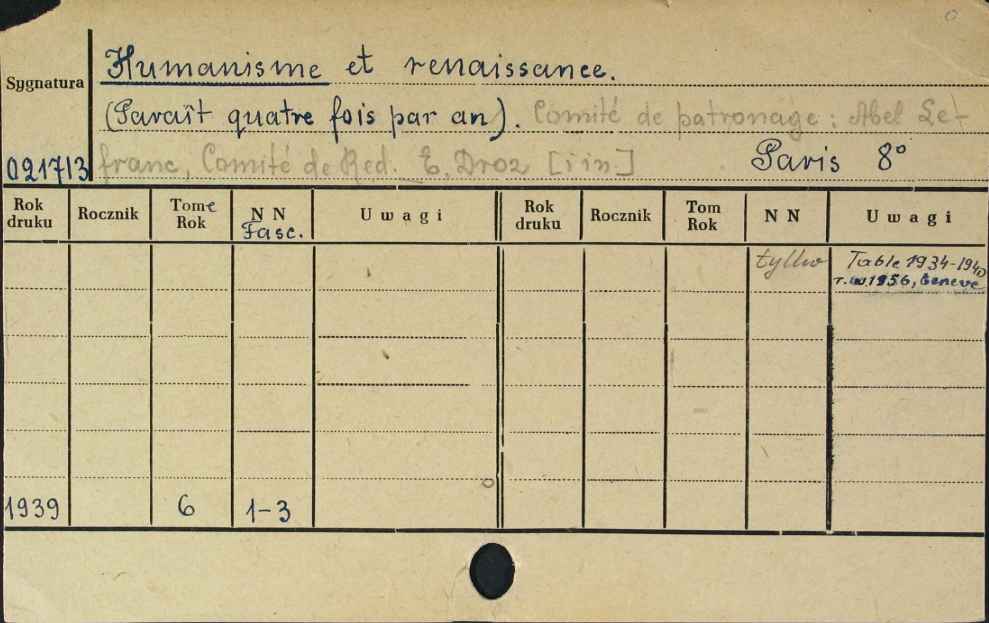 Humanisme et renaissance.
Sygnatura
(Paraît quatre fois par an). Comité de patronage: Abel Le-
021713 franc, Comité de Red. E. Droz [i in.] Paris 8°
Rok druku Rocznik Tome Rok NN Fasc. Uwagi Rok druku Rocznik Tom Rok NN Uwagi
tylko Table 1934-1940
Geneve
1939 6 1-3